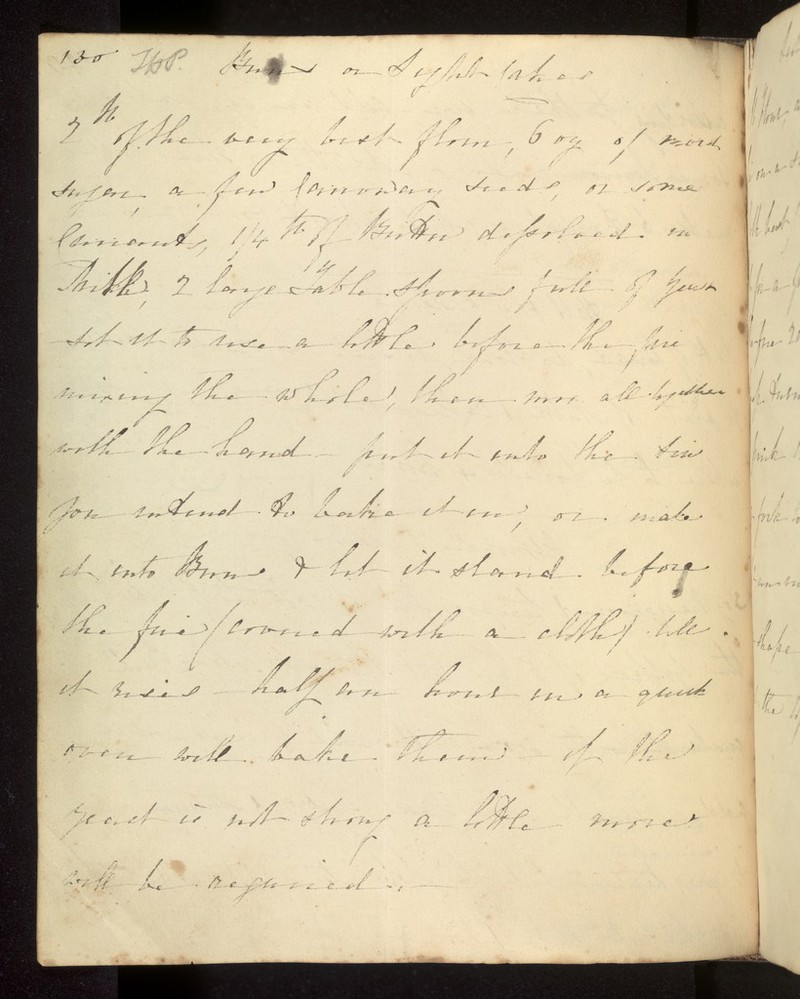 130 Buns or Light Cakes
2 lb of the very best flour, 6 oz of moist
sugar, a few Carraway seeds, or some
Currants, 1/4 lb of Butter dissolved in
Milk, 2 large Table spoons full of yeast
set it to rise a little before the fire
mixing the whole, then mix all together
with the hand - put it into the tin
you intend to bake it in, or make
it into Buns & let it stand before
the fire (covered with a cloth) till
it rises - half an hour in a quick
oven will bake them - if the
yeast is not strong a little more
will be required. -